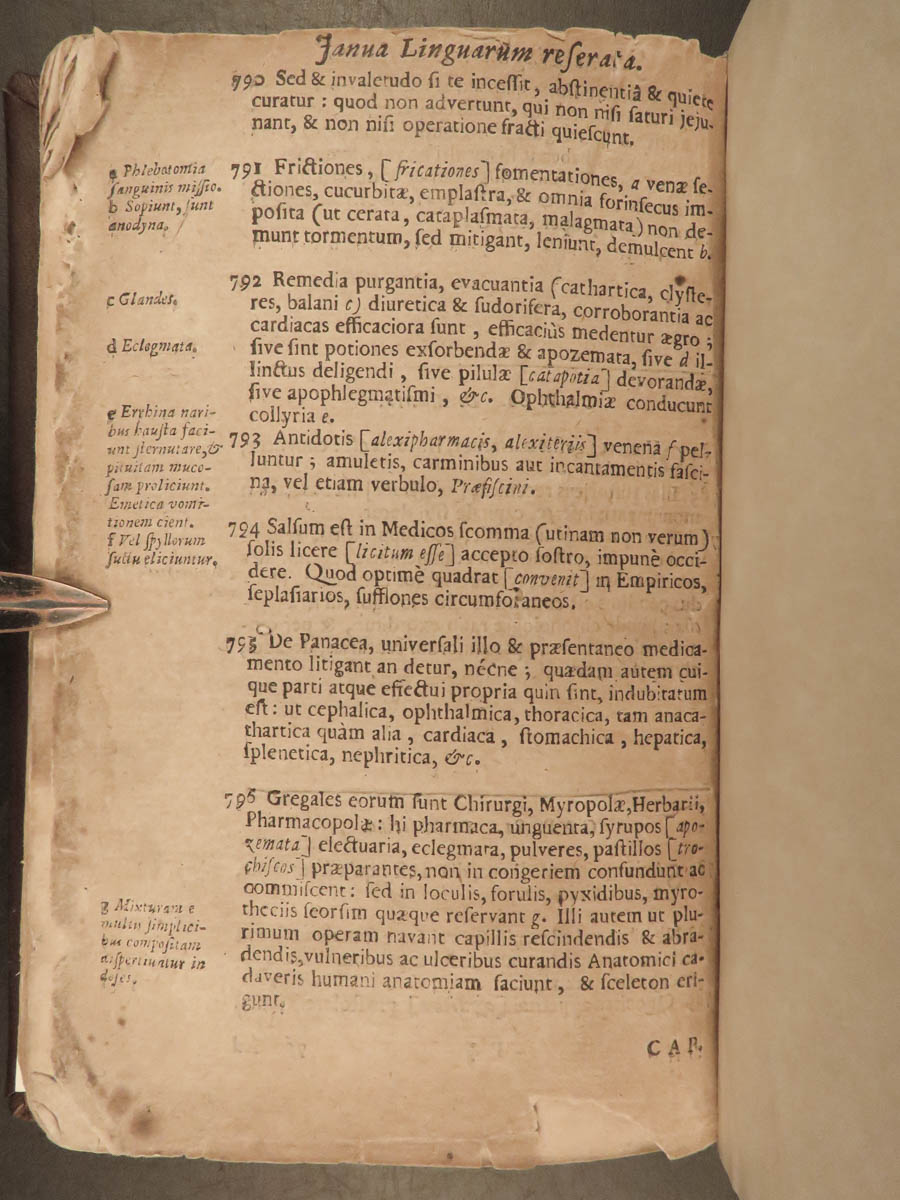 Janua Linguarum reſerata.
790 Sed & invaletudo ſi te inceſſit, abſtinentiâ & quiete
curatur : quod non advertunt, qui non niſi ſaturi jeju-
nant, & non niſi operatione fracti quieſcunt.
791 Frictiones, [fricationes] fomentationes, a venæ ſe-
ctiones, cucurbitæ, emplaſtra, & omnia forinſecus im-
poſita (ut cerata, cataplaſmata, malagmata) non de-
munt tormentum, ſed mitigant, leniunt, demulcent b.
a Phlebotomia
ſanguinis miſſio.
b Sopiunt, ſunt
anodyna.
792 Remedia purgantia, evacuantia (cathartica, clyſte-
res, balani c) diuretica & ſudorifera, corroborantia ac
cardiacas efficaciora ſunt, efficaciùs medentur ægro ;
ſive ſint potiones exſorbendæ & apozemata, ſive d il-
linctus deligendi, ſive pilulæ [catapotia] devorandæ,
ſive apophlegmatiſmi, &c. Ophthalmiæ conducunt
collyria e.
c Glandes.
d Eclegmata.
793 Antidotis [alexipharmacis, alexiteriis] venena f pel-
luntur ; amuletis, carminibus aut incantamentis faſci-
na, vel etiam verbulo, Præfiſcini.
e Errhina nari-
bus hauſta faci-
unt ſternutare, &
pituitam muco-
ſam proliciunt.
Emetica vomi-
tionem cient.
f Vel ſpyllorum
ſuctu eliciuntur.
794 Salſum eſt in Medicos ſcomma (utinam non verum)
ſolis licere [licitum eſſe] accepto ſoſtro, impunè occi-
dere. Quod optimè quadrat [convenit] in Empiricos,
ſeplaſiarios, ſufflones circumforaneos.
795 De Panacea, univerſali illo & præſentaneo medica-
mento litigant an detur, nécne ; quædam autem cui-
que parti atque effectui propria quin ſint, indubitatum
eſt : ut cephalica, ophthalmica, thoracica, tam anaca-
thartica quàm alia, cardiaca, ſtomachica, hepatica,
ſplenetica, nephritica, &c.
796 Gregales eorum ſunt Chirurgi, Myropolæ, Herbarii,
Pharmacopolæ : hi pharmaca, unguenta, ſyrupos [apo-
zemata] electuaria, eclegmata, pulveres, paſtillos [tro-
chiſcos] præparantes, non in congeriem confundunt ac
commiſcent : ſed in loculis, forulis, pyxidibus, myro-
theciis ſeorſim quæque reſervant g. Illi autem ut plu-
rimum operam navant capillis reſcindendis & abra-
dendis, vulneribus ac ulceribus curandis Anatomici ca-
daveris humani anatomiam faciunt, & ſceleton eri-
gunt.
g Mixturam e
multis ſimplici-
bus compoſitam
diſpertiuntur in
doſes.
CAP.